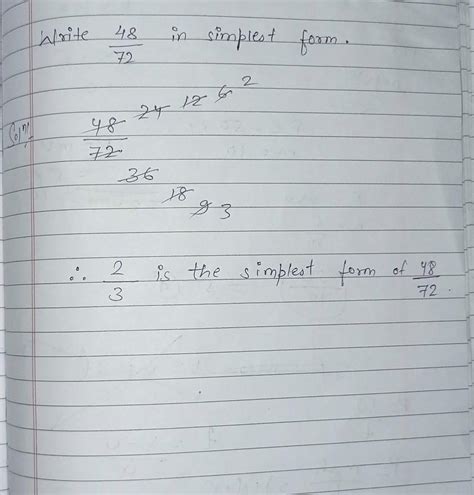 Write 48/72 in simplest form.
Soln:
48/72 24 12 6 2
36
18
9 3
∴ 2/3 is the simplest form of 48/72.